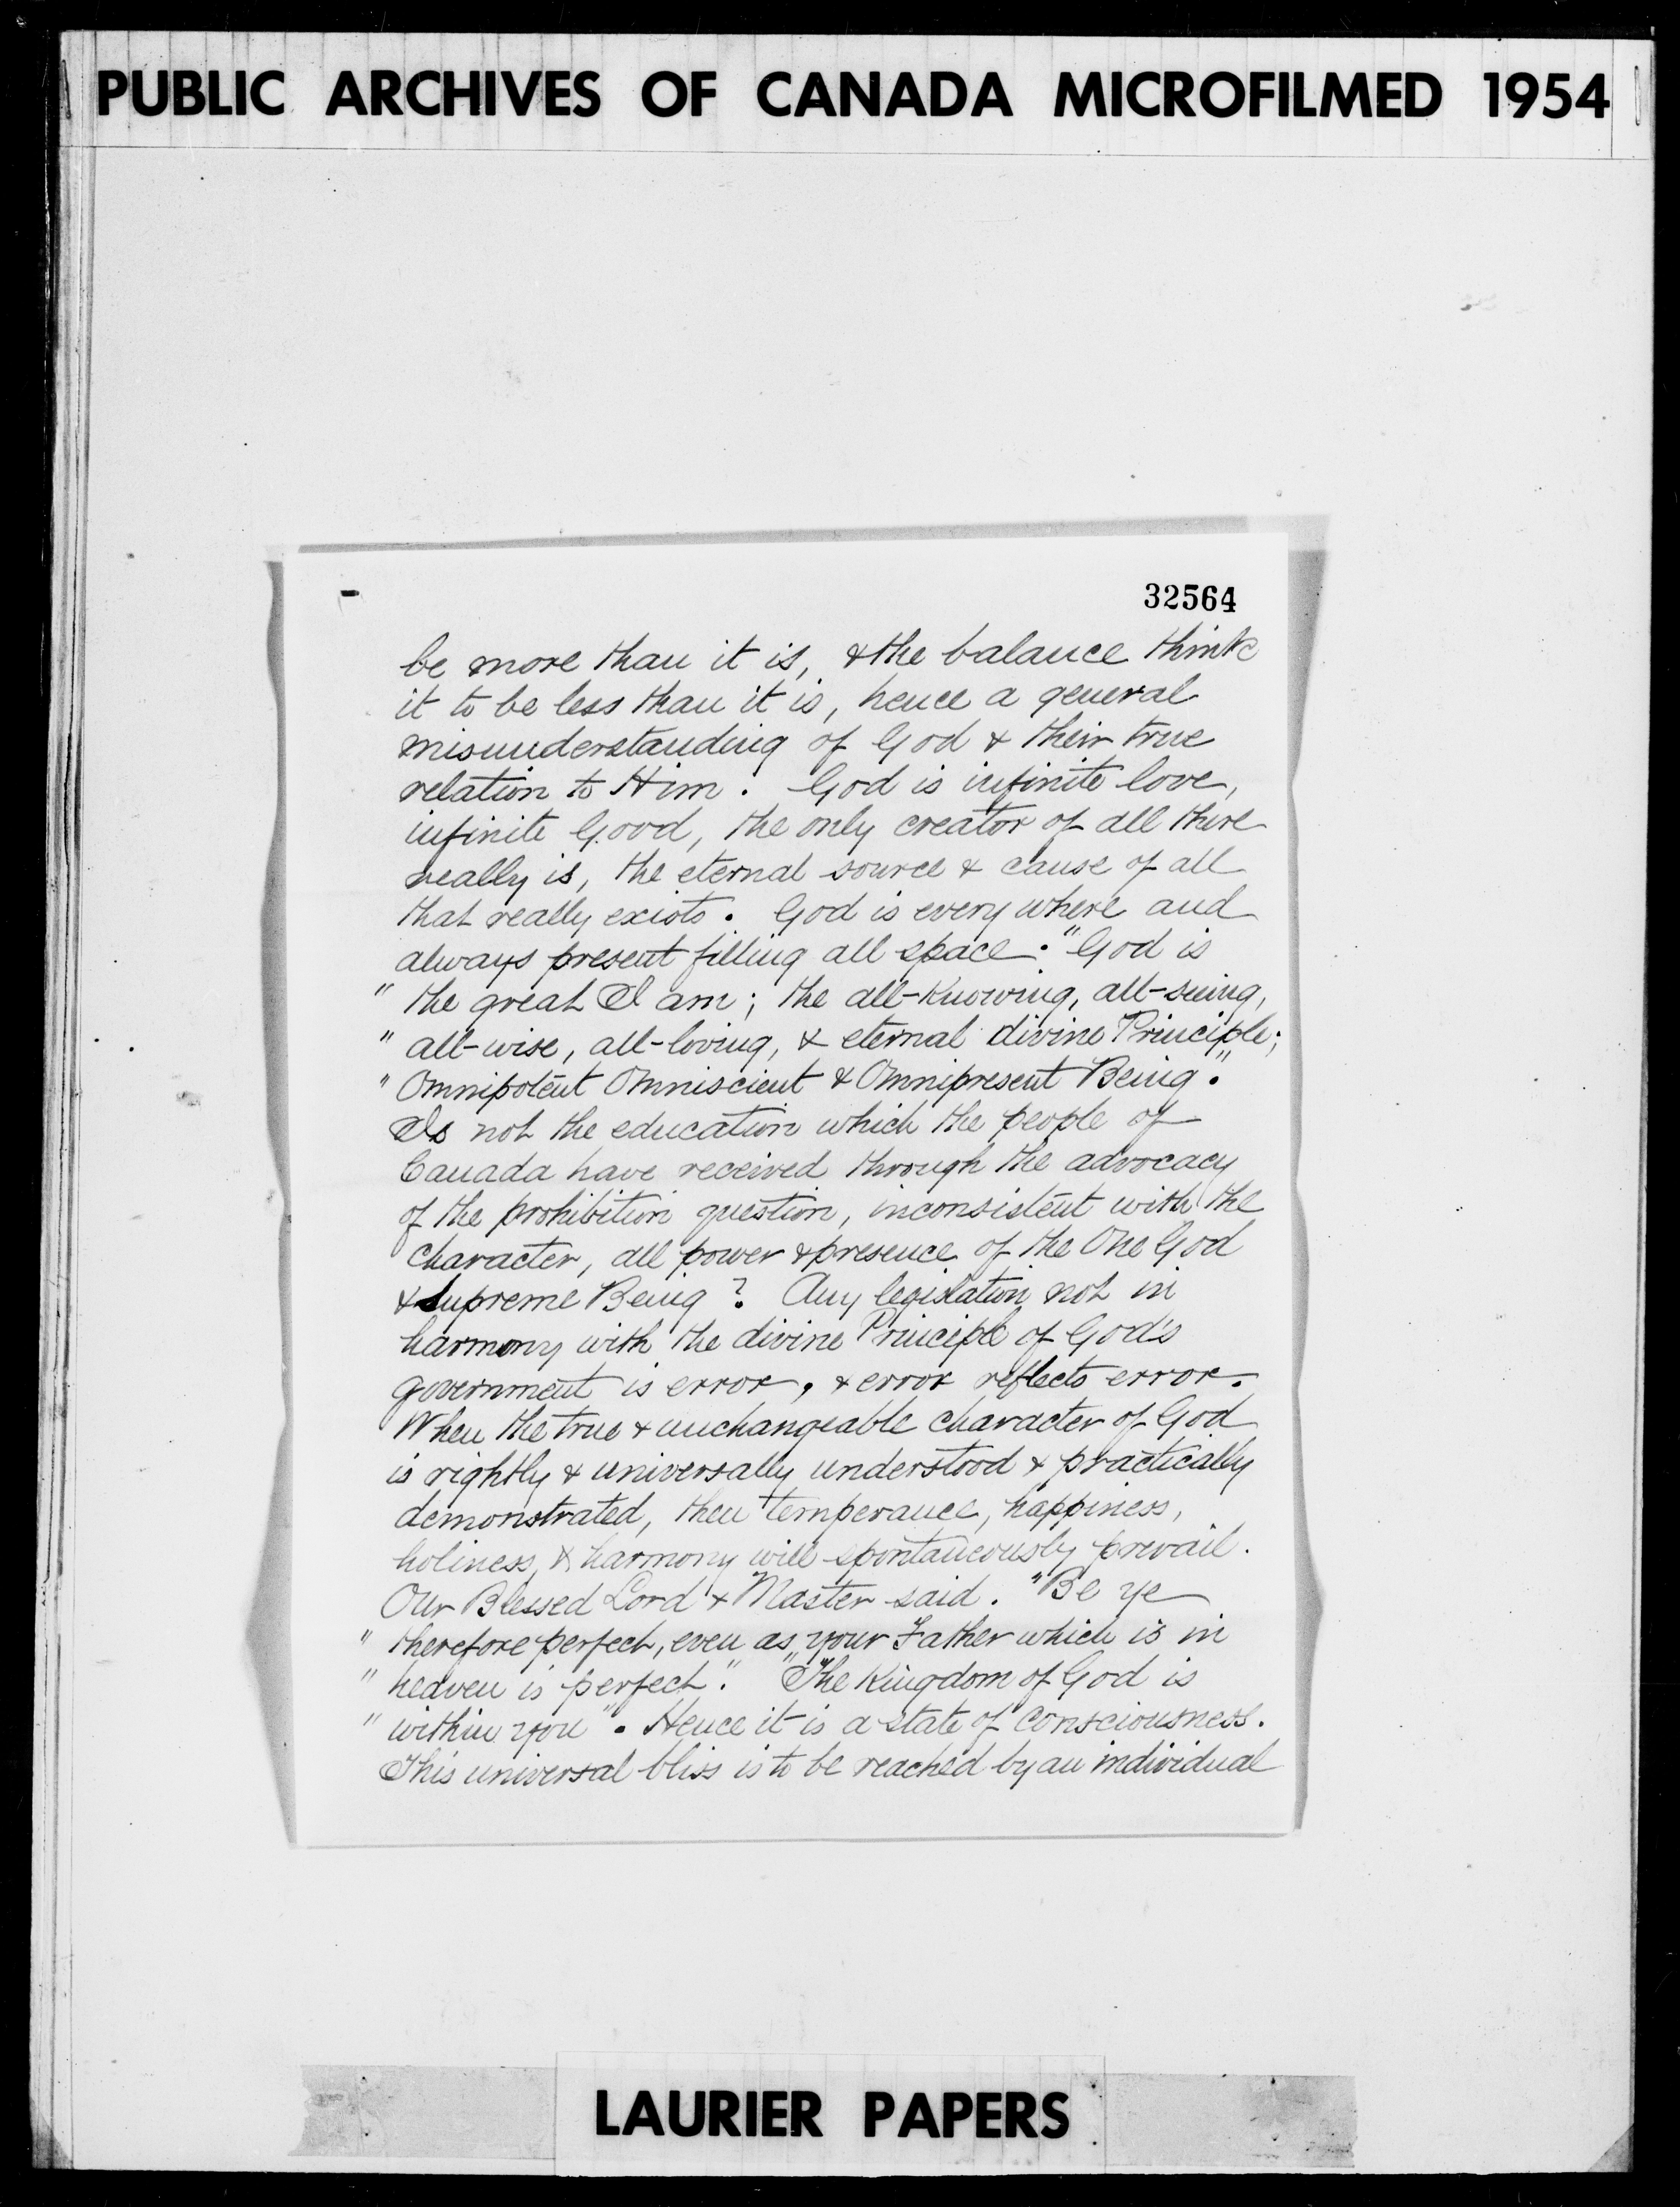 PUBLIC ARCHIVES OF CANADA MICROFILMED 1954
32564
be more than it is, & the balance think
it to be less than it is, hence a general
misunderstanding of God & their true
relation to Him. God is infinite love,
infinite Good, the only creator of all there
really is, the eternal source & cause of all
that really exists. God is every where and
always present filling all space. "God is
" the great I am; the all-knowing, all-seeing,
" all-wise, all-loving, & eternal divine Principle;
" Omnipotent Omniscient & Omnipresent Being."
Is not the education which the people of
Canada have received through the advocacy
of the prohibition question, inconsistent with the
character, all power & presence of the One God
& Supreme Being? Any legislation not in
harmony with the divine Principle of God's
government is error, & error reflects error.
When the true & unchangeable character of God
is rightly & universally understood & practically
demonstrated, then temperance, happiness,
holiness, & harmony will spontaneously prevail.
Our Blessed Lord & Master said. "Be ye
" therefore perfect, even as your Father which is in
" heaven is perfect." "The Kingdom of God is
" within you". Hence it is a state of consciousness.
This universal bliss is to be reached by an individual
LAURIER PAPERS